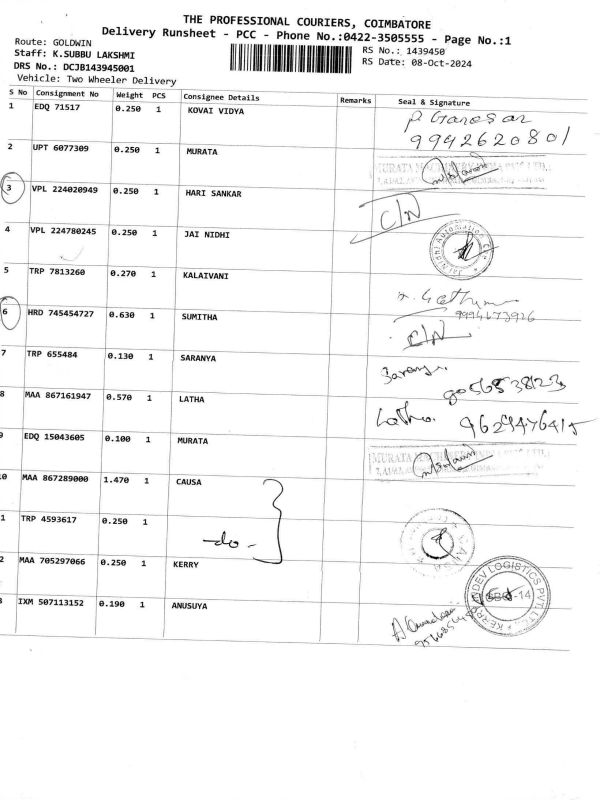 THE PROFESSIONAL COURIERS, COIMBATORE
Delivery Runsheet - PCC - Phone No.:0422-3505555 - Page No.:1
Route: GOLDWIN
RS No.: 1439450
Staff: K.SUBBU LAKSHMI
RS Date: 08-Oct-2024
DRS No.: DCJB143945001
Vehicle: Two Wheeler Delivery
S No Consignment No Weight PCS Consignee Details Remarks Seal & Signature
1 EDQ 71517 0.250 1 KOVAI VIDYA
9942620801
2 UPT 6077309 0.250 1 MURATA
3 VPL 224020949 0.250 1 HARI SANKAR C/N
4 VPL 224780245 0.250 1 JAI NIDHI
5 TRP 7813260 0.270 1 KALAIVANI
9994673926
6 HRD 745454727 0.630 1 SUMITHA C/N
7 TRP 655484 0.130 1 SARANYA
8 MAA 867161947 0.570 1 LATHA Latha. 9629476415
9 EDQ 15043605 0.100 1 MURATA
0 MAA 867289000 1.470 1 CAUSA
1 TRP 4593617 0.250 1 -do-
2 MAA 705297066 0.250 1 KERRY
3 IXM 507113152 0.190 1 ANUSUYA